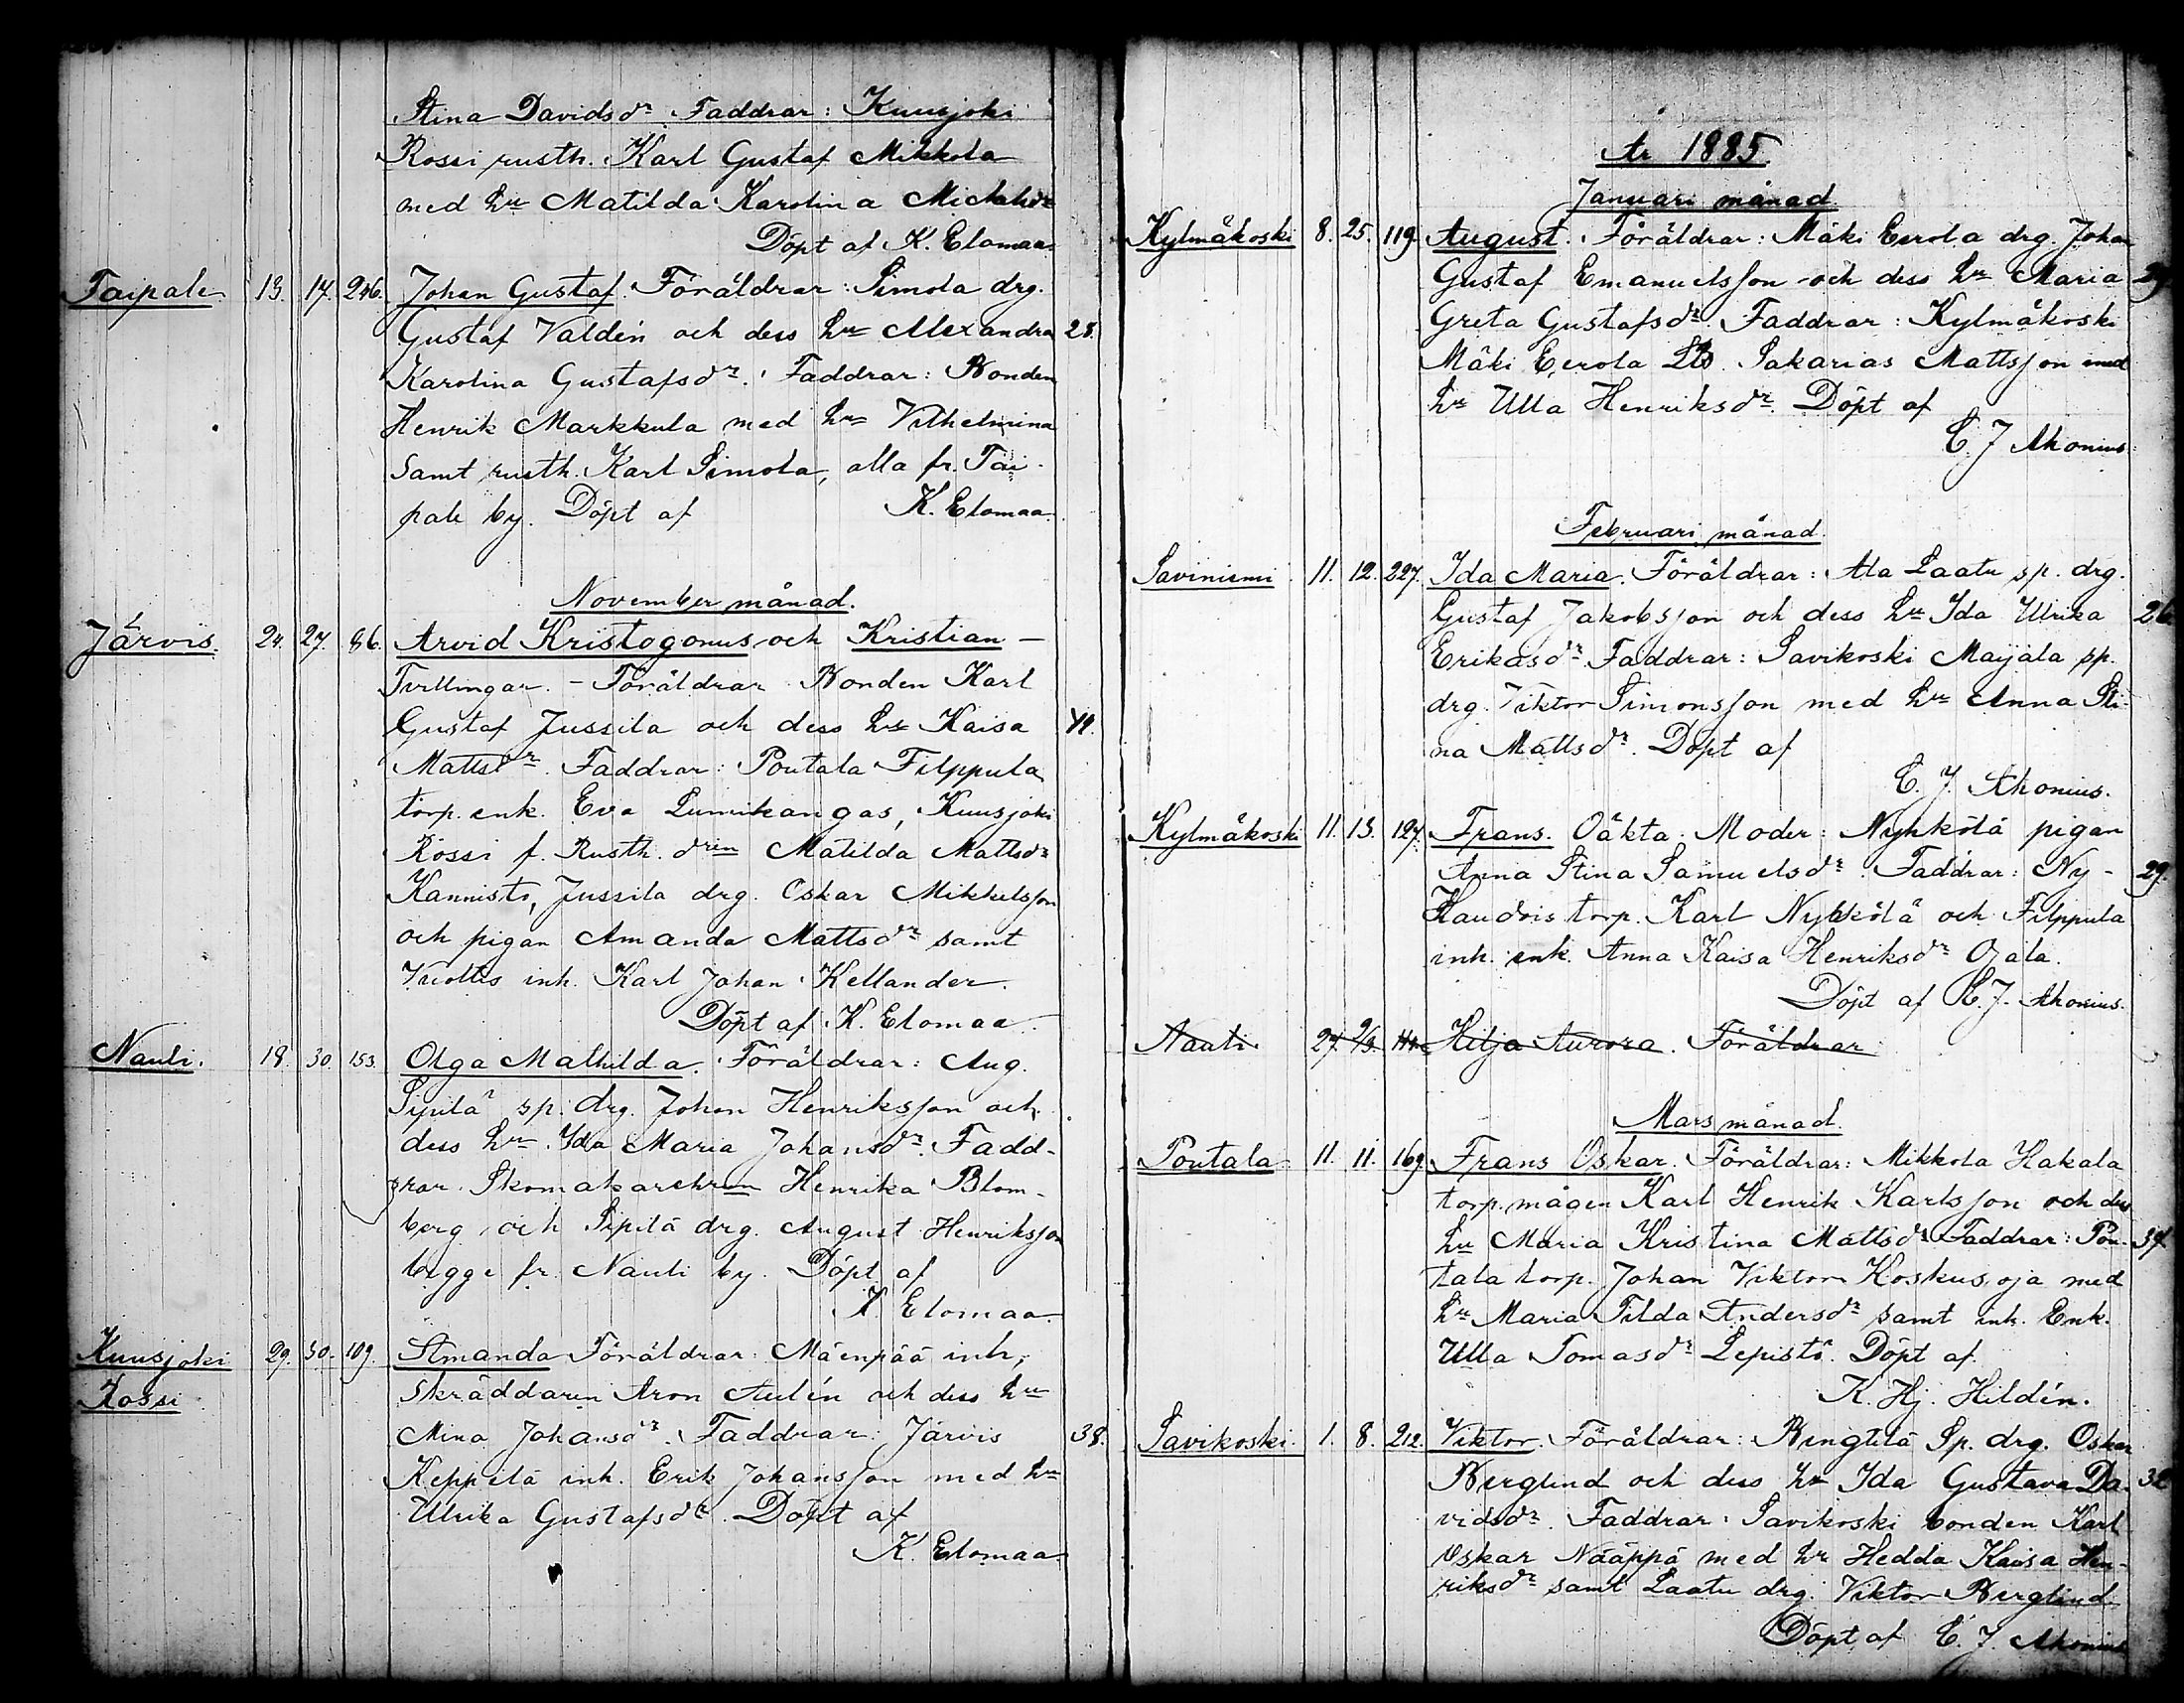 Stina Davidsdr. Faddrar: Kuusjoki
Rossi rusth. Karl Gustaf Mikkola
med hu Matilda Karolina Michelsdr
Döpt af K. Elomaa.
Taipale 13. 17. 246. Johan Gustaf. Föräldrar: Simola drg.
Gustaf Valdén och dess hu Alexandra 28.
Karolina Gustafsdr. Faddrar: Bonden
Henrik Markkula med hu Vilhelmina
samt rusth. Karl Simola, alla fr. Tai-
pale by. Döpt af K. Elomaa.
November månad.
Järvis. 24. 27. 86. Arvid Kristogonus och Kristian –
Tvillingar. – Föräldrar Bonden Karl
Gustaf Jussila och dess hu Kaisa 44.
Mattsdr. Faddrar: Poutala Filppula
torp. enk. Eva Lumikangas, Kuusjoki
Rossi f. Rusth. drn Matilda Mattsdr
Kannisto, Jussila drg. Oskar Mikkelsson
och pigan Amanda Mattsdr samt
Vuoltis inh. Karl Johan Kellander.
Döpt af K. Elomaa.
Nauli. 18. 30. 153. Olga Mathilda. Föräldrar: Aug.
Sipilä sp. drg. Johan Henriksson och
dess hu Ida Maria Johansdr. Fadd-
rar. Skomakarehrun Henrika Blom-
berg och Sipilä drg. August Henriksson
begge fr. Nauli by. Döpt af
K. Elomaa.
Kuusjoki 29. 30. 109. Amanda Föräldrar: Mäenpää inh,
Rossi Skräddaren Aron Aulén och dess hu
Mina Johansdr. Faddrar: Järvis 38.
Keppilä inh. Erik Johansson med hu
Ulrika Gustafsdr. Döpt af
K. Elomaa
År 1885.
Januari månad.
Kylmäkoski 8. 25. 119. August. Föräldrar: Mäki Eerola drg. Johan
Gustaf Emanuelsson och dess hu Maria 29.
Greta Gustafsdr. Faddrar: Kylmäkoski
Mäki Eerola Sakarias Mattsson med
hu Ulla Henriksdr. Döpt af
C. J. Ahonius.
Februari månad.
Saviniemi 11. 12. 227. Ida Maria. Föräldrar: Ala Laatu sp. drg.
Gustaf Jakobsson och dess hu Ida Ulrika 26
Eriksdr. Faddrar: Savikoski Maijala sp.
drg. Viktor Simonsson med hu Anna Sti-
na Mattsdr. Döpt af
C. J. Ahonius.
Kylmäkoski 11. 13. 127. Frans. Oäkta. Moder: Nyhkölä pigan
Anna Stina Samuelsdr. Faddrar: Ny- 29.
torp. Karl Nyhkölä och Filppula
inh. enk. Anna Kaisa Henriksdr Ojala.
Döpt af C. J. Ahonius.
Naati. 27. 9/3. Hilja Aurora. Föräldrar
Mars månad.
Poutala 11. 11. 169. Frans Oskar. Föräldrar: Mikkola Hakala
torp. mågen Karl Henrik Karlsson och dess
hu Maria Kristina Mattsdr Faddrar: Pou- 37.
tala torp. Johan Viktor Koskusoja med
hu Maria Tilda Andersdr samt inh. Enk.
Ulla Tomasdr Lepistö. Döpt af
K. Hj. Hildén.
Savikoski. 1. 8. 212. Viktor. Föräldrar: Sp. drg. Oskar
Berglind och dess hu Ida Gustava Da- 32
vidsdr. Faddrar: Savikoski bonden Karl
Oskar Nääppä med hu Hedda Kaisa Hen-
riksdr samt Laatu drg. Viktor Berglind.
Döpt af C. J. Ahonius